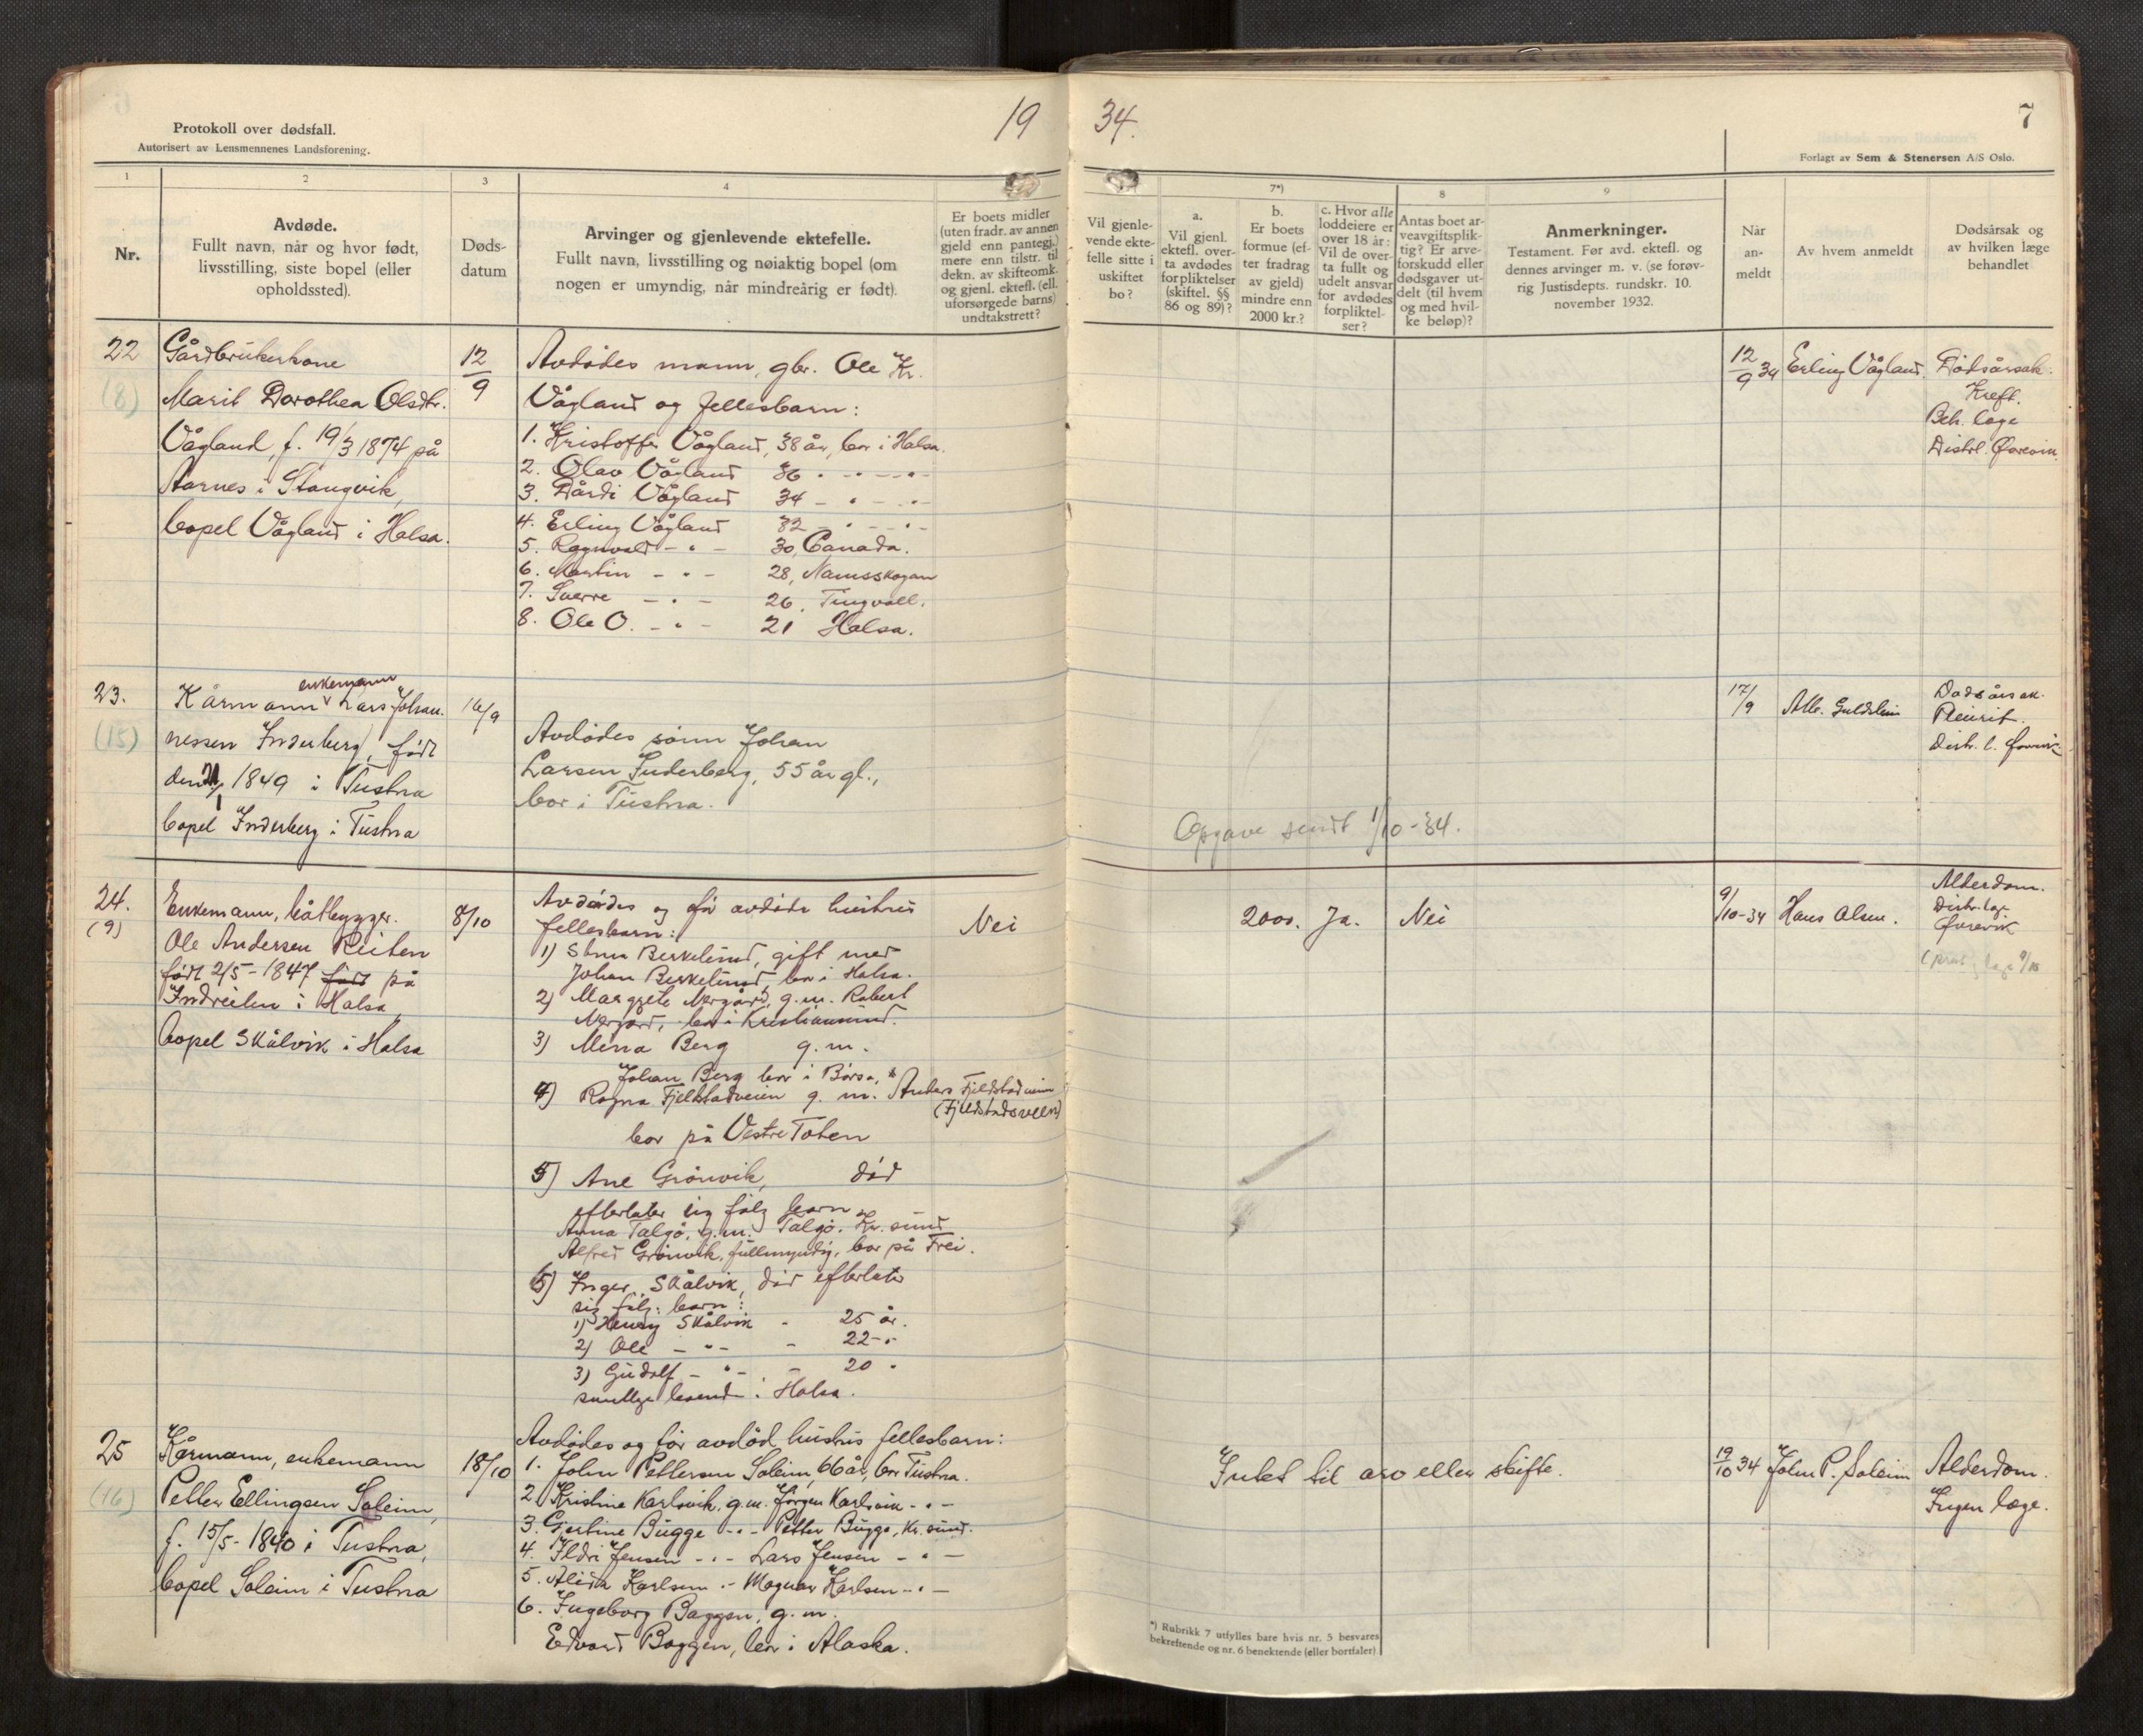 Protokoll over dødsfall.
Autorisert av Lensmennenes Landsforening.
19
34.
7
Forlagt av Sem & Stenersen A/S Oslo.
1
2
3
4
7*)
8
9
Nr.
Avdøde.
Fullt navn, når og hvor født,
livsstilling, siste bopel (eller
opholdssted).
Døds-
datum
Arvinger og gjenlevende ektefelle.
Fullt navn, livsstilling og nøiaktig bopel (om
nogen er umyndig, når mindreårig er født).
Er boets midler
(uten fradr. av annen
gjeld enn pantegj.)
mere enn tilstr. til
dekn. av skifteomk.
og gjenl. ektefl. (ell.
uforsørgede barns)
undtakstrett?
Vil gjenle-
vende ekte-
felle sitte i
uskiftet
bo?
a.
Vil gjenl.
ektefl. over-
ta avdødes
forpliktelser
(skiftel. §§
86 og 89)?
b.
Er boets
formue (ef-
ter fradrag
av gjeld)
mindre enn
2000 kr.?
c. Hvor alle
loddeiere er
over 18 år:
Vil de over-
ta fullt og
udelt ansvar
for avdødes
forpliktel-
ser?
Antas boet ar-
veavgiftsplik-
tig? Er arve-
forskudd eller
dødsgaver ut-
delt (til hvem
og med hvil-
ke beløp)?
Anmerkninger.
Testament. Før avd. ektefl. og
dennes arvinger m. v. (se forøv-
rig Justisdepts. rundskr. 10.
november 1932.
Når
an-
meldt
Av hvem anmeldt
Dødsårsak og
av hvilken læge
behandlet
22
(8)
Gårdbrukerkone
Marit Dorothea Olsdtr.
Vågland, f. 19/3 1874 på
Aarnes i Stangvik,
bopel Vågland i Halsa.
12/9
Avdødes mann, gbr. Ole Kr.
Vågland og fellesbarn:
1. Kristoffer Vågland, 38 år, bor i Halsa.
2. Olav Vågland 36 " - - " -
3. Dårdi Vågland 34 - " - " -
4. Erling Vågland 32 - " - " -
5. Ragnvald - " - 30, Canada.
6. Martin - " - 28, Namsskogan
7. Sverre - " - 26, Tingvoll.
8. Ole O. - " - 21 Halsa.
12/9 34
Erling Vågland.
Dødsårsak:
Kreft.
Beh. læge
Distrl. Øwrevik.
23.
(15)
Kårmann enkemann Lars Johan-
nessen Inderberg, født
den 21/1 1849 i Tustna
bopel Inderberg i Tustna
16/9
Avdødes sønn Johan
Larsen Inderberg, 55 år gl.,
bor i Tustna.
Opgave sendt 1/10-34.
17/9
Alb. Guldstein
Dødsårsak.
Pleurit.
distr. l.
24.
(9)
Enkemann, båtbygger.
Ole Andersen Reiten
født 2/5-1847 født på
Indreiten i Halsa,
bopel Skålvik i Halsa
8/10
Avdødes og før avdøde hustrus
fellesbarn:
1) Berkelund, gift med
Johan Berkelund, bor i Halsa.
2) Margrete Nergård, g.m. Robert
Nergård, bor i Kristiansund.
3) Minna Berg g.m.
Johan Berg bor i Börsa,
4) Ragna Fjelstadveien g. m. Anders Fjeldstadveien
(Fjeldstadsveen)
bor på Vestre Toten
5) Ane Grönvik, død
efterlater sig følg barn
Anna Talgö, g.m. Talgö, Kr.sund
Alfred Grönvik, fullmyndig, bor på Frei.
6) Inger Skålvik, död efterlater
sig følg. barn:
1) Henry Skålvik - 25 år.
2) Ole - " - - 22 - " -
3) Gudolf - " - - 20 "
samtlige boende i Halsa.
Nei
2000. Ja.
Nei
9/10-34
Hans Olsen.
Alderdom.
Distr.læge
25
(16)
Kårmann, enkemann
Petter Ellingsen Soleim,
f. 15/5-1840 i Tustna,
bopel Soleim i Tustna
18/10
Avdødes og før avdød hustrus fellesbarn:
1. John Pettersen Soleim, 66 år, bor Tustna.
2. Kristine Karlsvik, g.m. Jörgen Karlsvik - " -
3. Gjertine Bugge - " - Petter Bugge, Kr.sund.
4. Ildri Jensen - " - Lars Jensen - " -
5. Alida Karlsen " - Magnar Karlsen - " -
6. Ingeborg Baggen, g.m.
Edvard Baggen, bor i Alaska.
Intet til arv eller skifte.
19/10 34
John P. Soleim
Alderdom.
Ingen læge.
*) Rubrikk 7 utfylles bare hvis nr. 5 besvares
bekreftende og nr. 6 benektende (eller bortfaler)